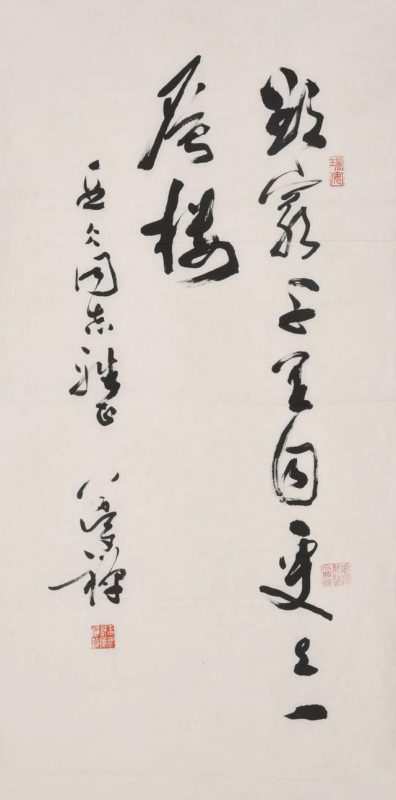 欲窮千里目更上一
層楼
同志雅正